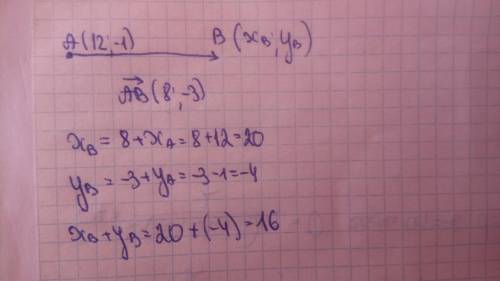 A(12;-1) B(xB;yB)
AB(8;-3)
xB = 8+xA = 8+12=20
yB = -3+yA = -3-1=-4
xB+yB = 20+(-4)=16